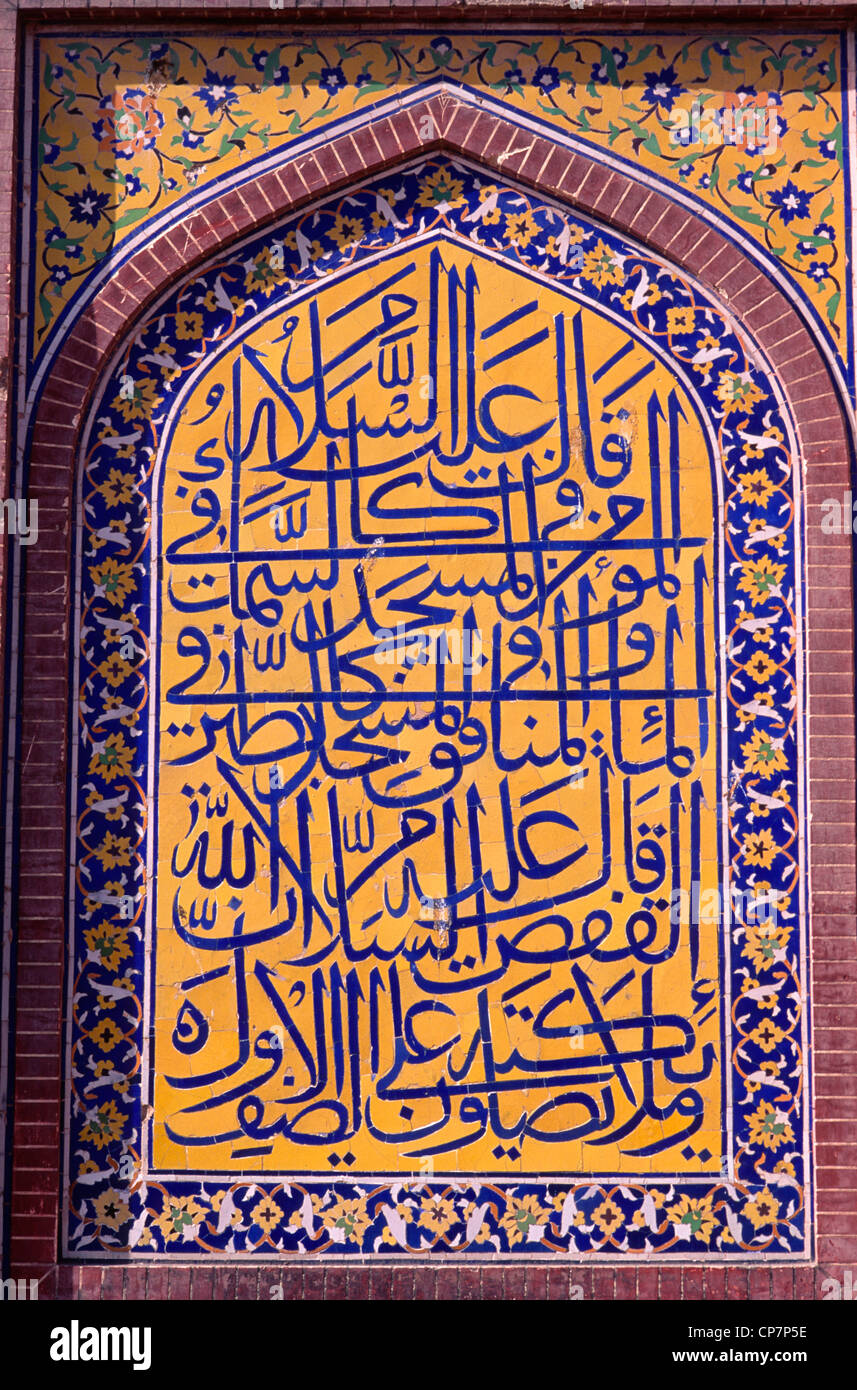 قال عليه السلام
المؤمن في المسجد كالسمك في
الماء والمنافق في المسجد كالطير في
القفص قال عليه السلام ان الله
وملائكته يصلون على الصف الاول
alamy
Image ID: CP7P5E
www.alamy.com